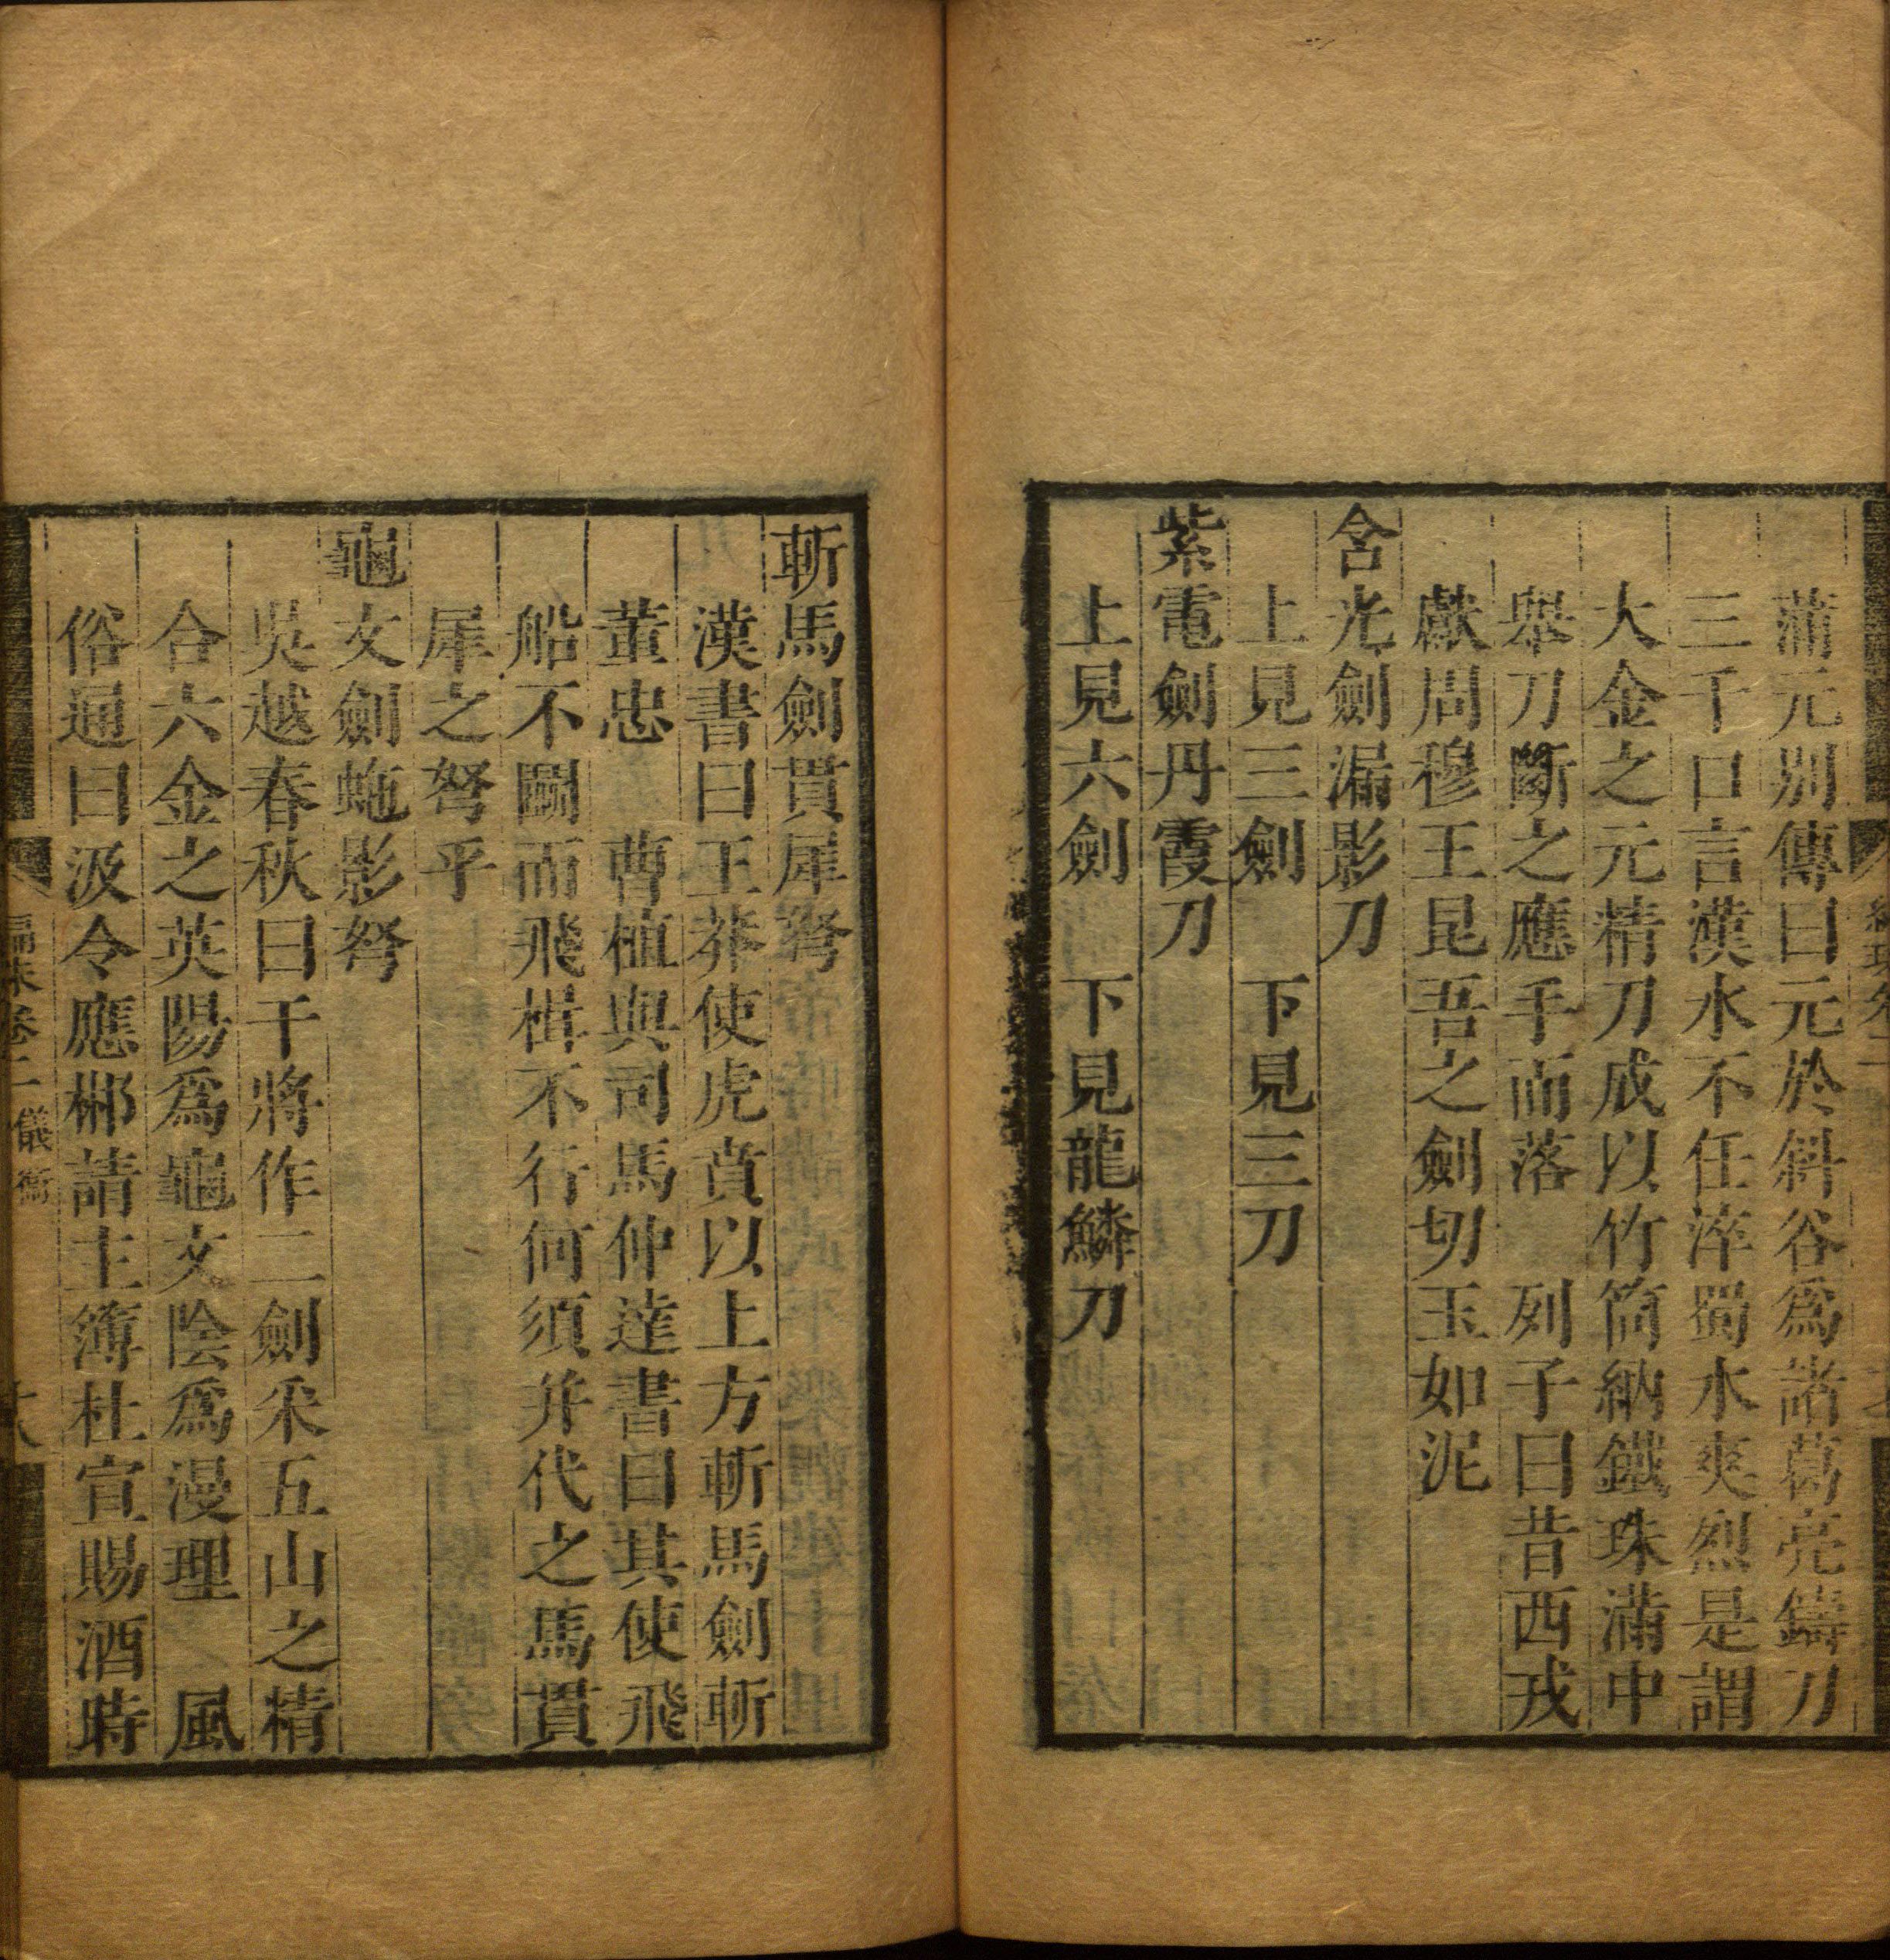 蒲元别傳曰元於斜谷爲諸葛亮鑄刀
三千口言漢水不任淬蜀水爽烈是謂
大金之元精刀成以竹筒納鐵珠滿中
舉刀斷之應手而落　列子曰昔西戎
獻周穆王昆吾之劍切玉如泥
含光劍漏影刀
上見三劍　下見三刀
紫電劍丹霞刀
上見六劍　下見龍鱗刀
斬馬劍貫犀弩
漢書曰王莽使虎賁以上方斬馬劍斬
董忠　曹植與司馬仲達書曰其使飛
船不鬭而飛檝不行何須并代之馬貫
犀之弩乎
龜文劍虵影弩
吳越春秋曰干將作二劍采五山之精
合六金之英陽爲龜文陰爲漫理　風
俗通曰汲令應郴請主簿杜宣賜酒時
編珠卷二 儀衞